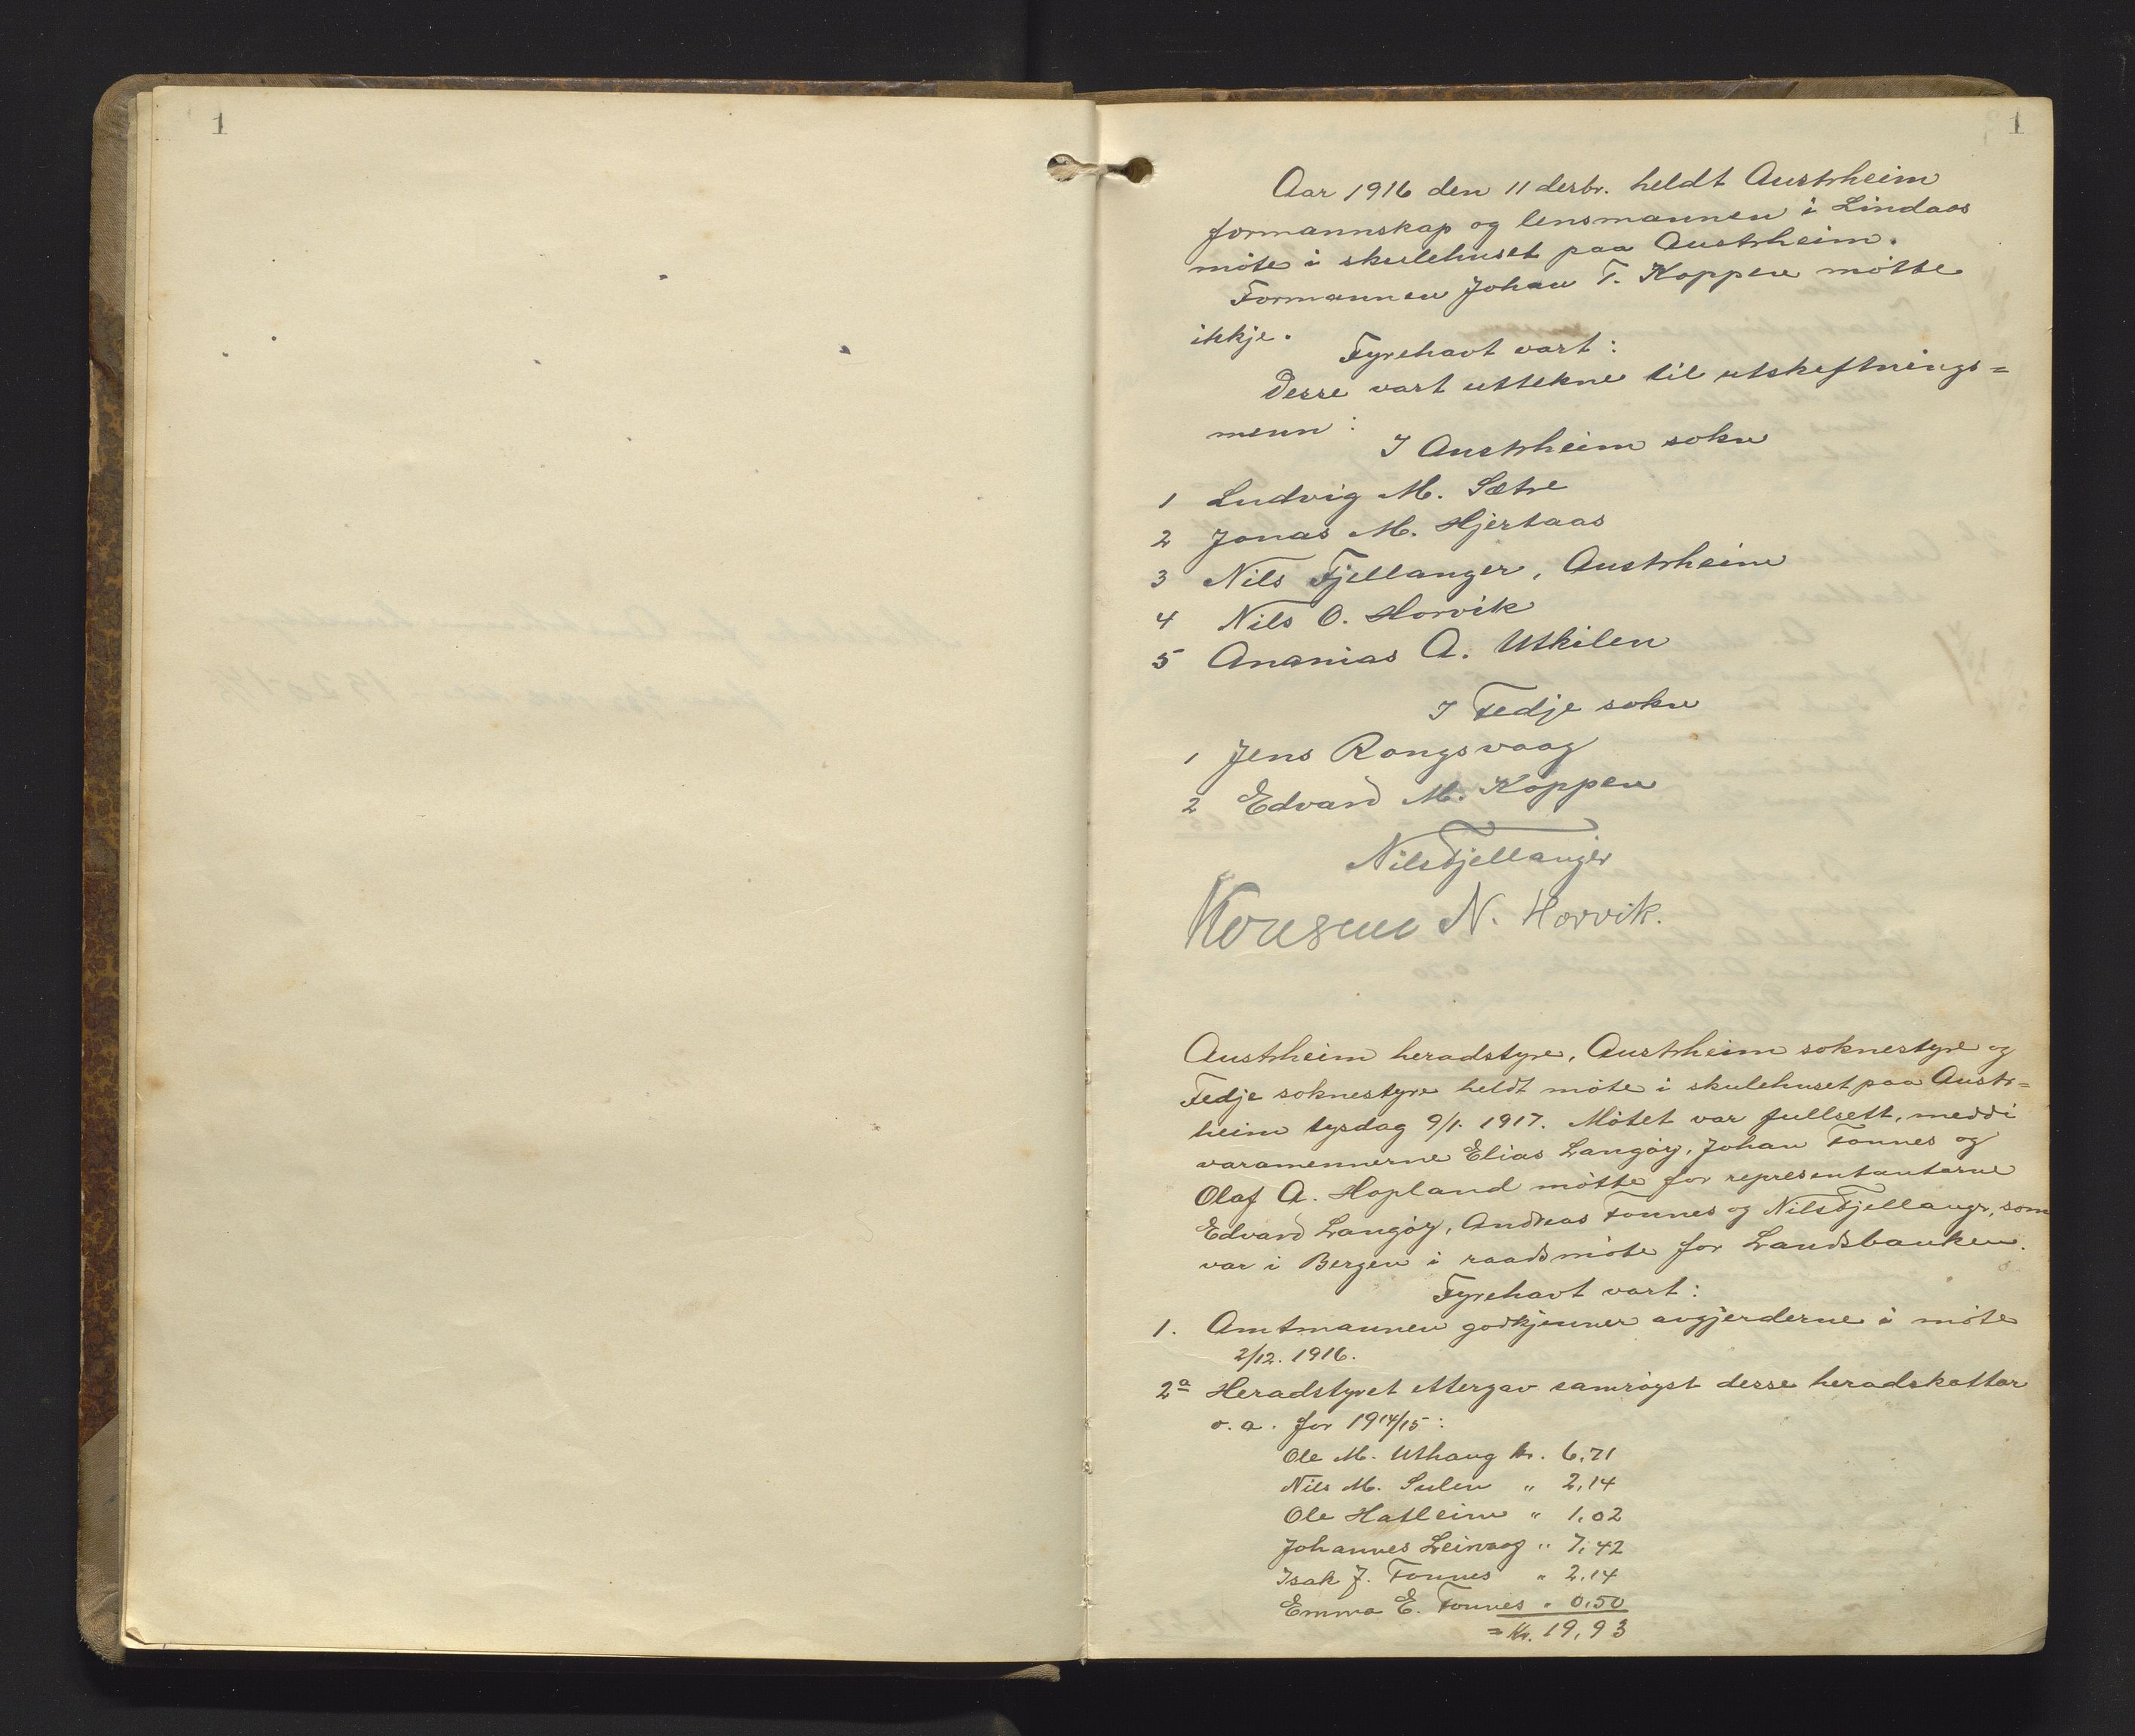 1
1
Aar 1916 den 11 desbr. heldt Austrheim
formannskap og lensmannen i Lindaas
møte i skulehuset paa Austrheim.
Formannen Johan T. Koppen møtte
ikkje.
Fyrehavt vart:
Desse vart uttekne til utskiftnings=
menn:
I Austrheim sokn
1 Ludvig M. Sætre
2 Jonas M. Hjertaas
3 Nils Fjellanger, Austrheim
4 Nils O. Horvik
5 Ananias A. Utkilen
I Fedje sokn
1 Jens Rongsvaag
2 Edvard M. Koppen
Nils Fjellanger
N. Horvik.
Austrheim heradstyre, Austrheim soknestyre og
Fedje soknestyre heldt møte i skulehuset paa Austr=
heim tysdag 9/1. 1917. Møtet var fullsett, meddi
varamennerne Elias Langøy, Johan Fonnes og
Olaf A. Hopland møtte for representantarne
Edvard Langøy, Andreas Fonnes og Nils Fjellangr, som
var i Bergen i raadsmøte for Landsbanken.
Fyrehavt vart:
1. Amtmannen godkjenner avgjerderne i møte
2/12. 1916.
2a Heradstyret ettergav samrøyst desse heradskattar
o. a. for 1914/15:
Ole M. Uthaug kr. 6,71
Nils M. Sulen " 2,14
Ole Hatleim " 1,02
Johannes Leirvaag " 7,42
Isak J. Fonnes " 2,14
Emma E. Fonnes " 0,50
= Kr. 19,93